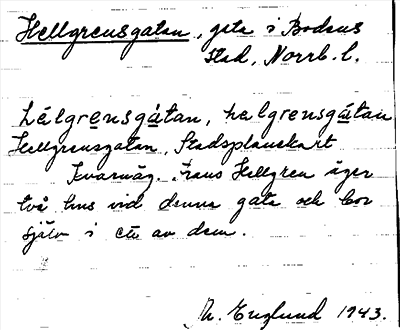 Hellgrensgatan, gata i Bodens
stad, Norrb. l.
hélgrensgàtan, helgrensgátan
Hellgrensgatan, Stadsplanekart
Kvarnäg. Frans Hellgren äger
två hus vid denna gata och bor
själv i ett av dem.
Englund 1943.